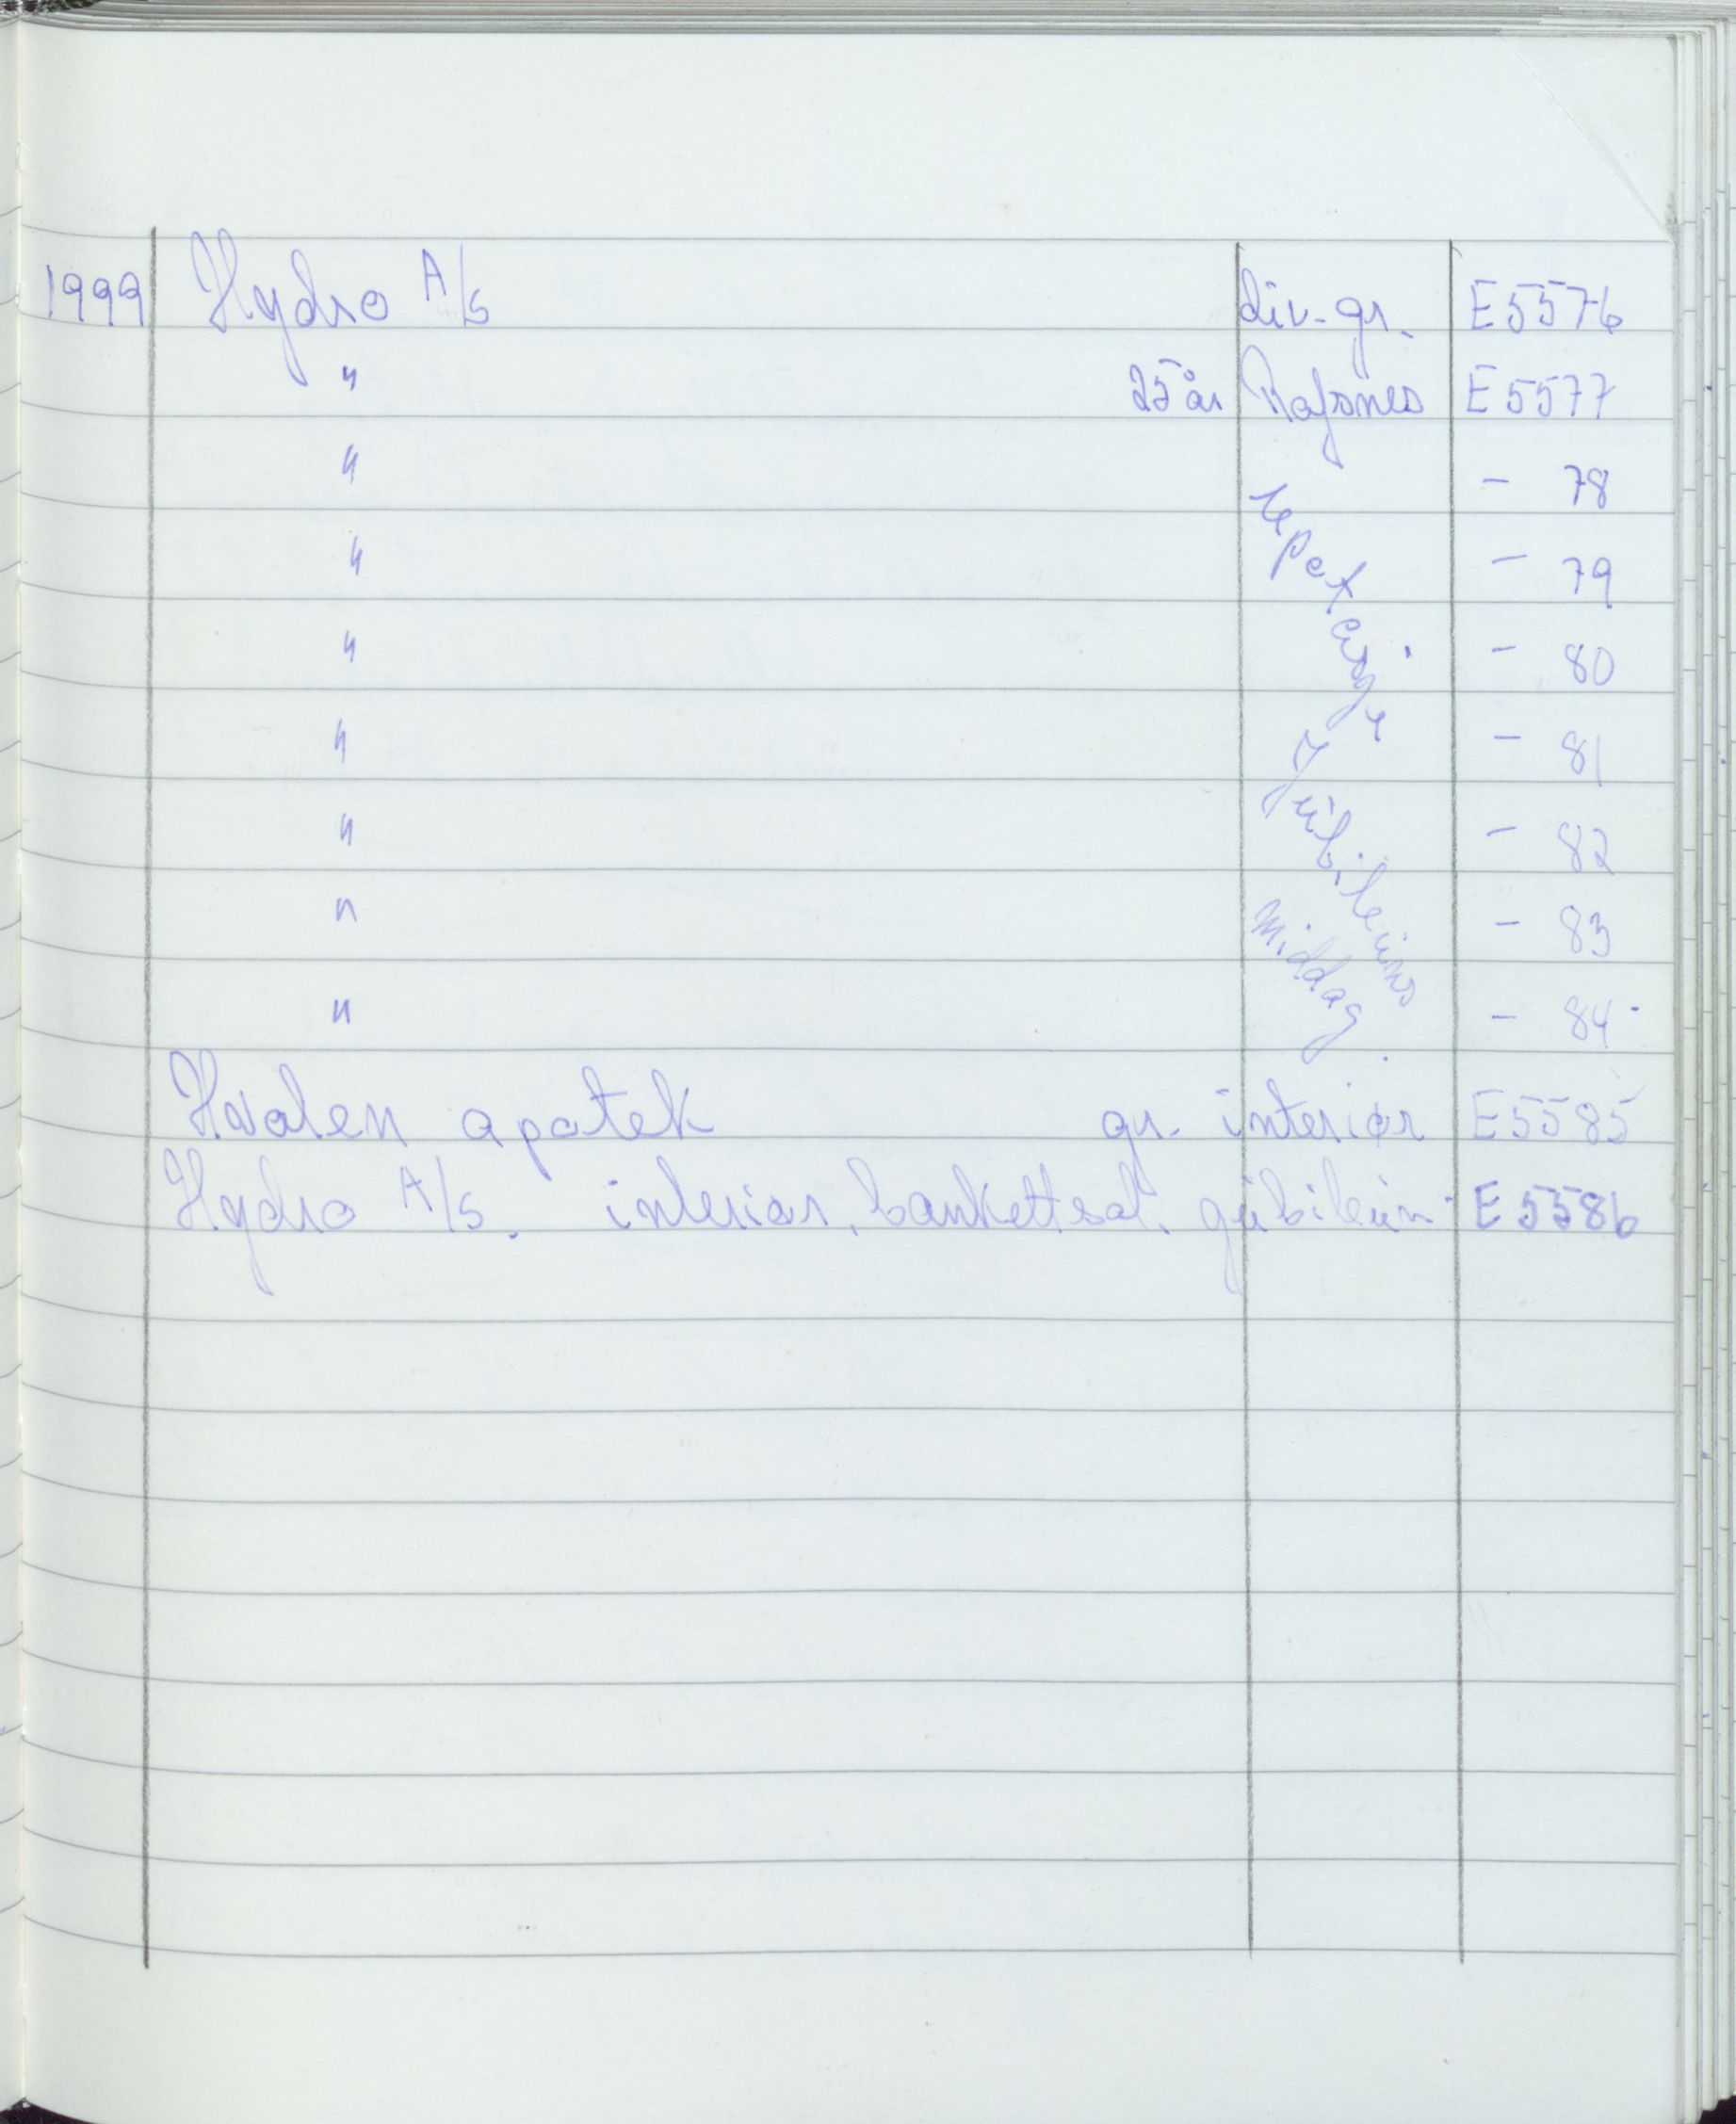 1999 Hydro A/s div. gr. E5576
" 25 år Rafsnes E5577
" - 78
" - 79
" - 80
" - 81
" - 82
" - 83
" - 84
reportasje
Jubileums
middag
Hvalen apotek gr. interiør E5585
Hydro A/s. interiør, bankettsal. jubileum E5586